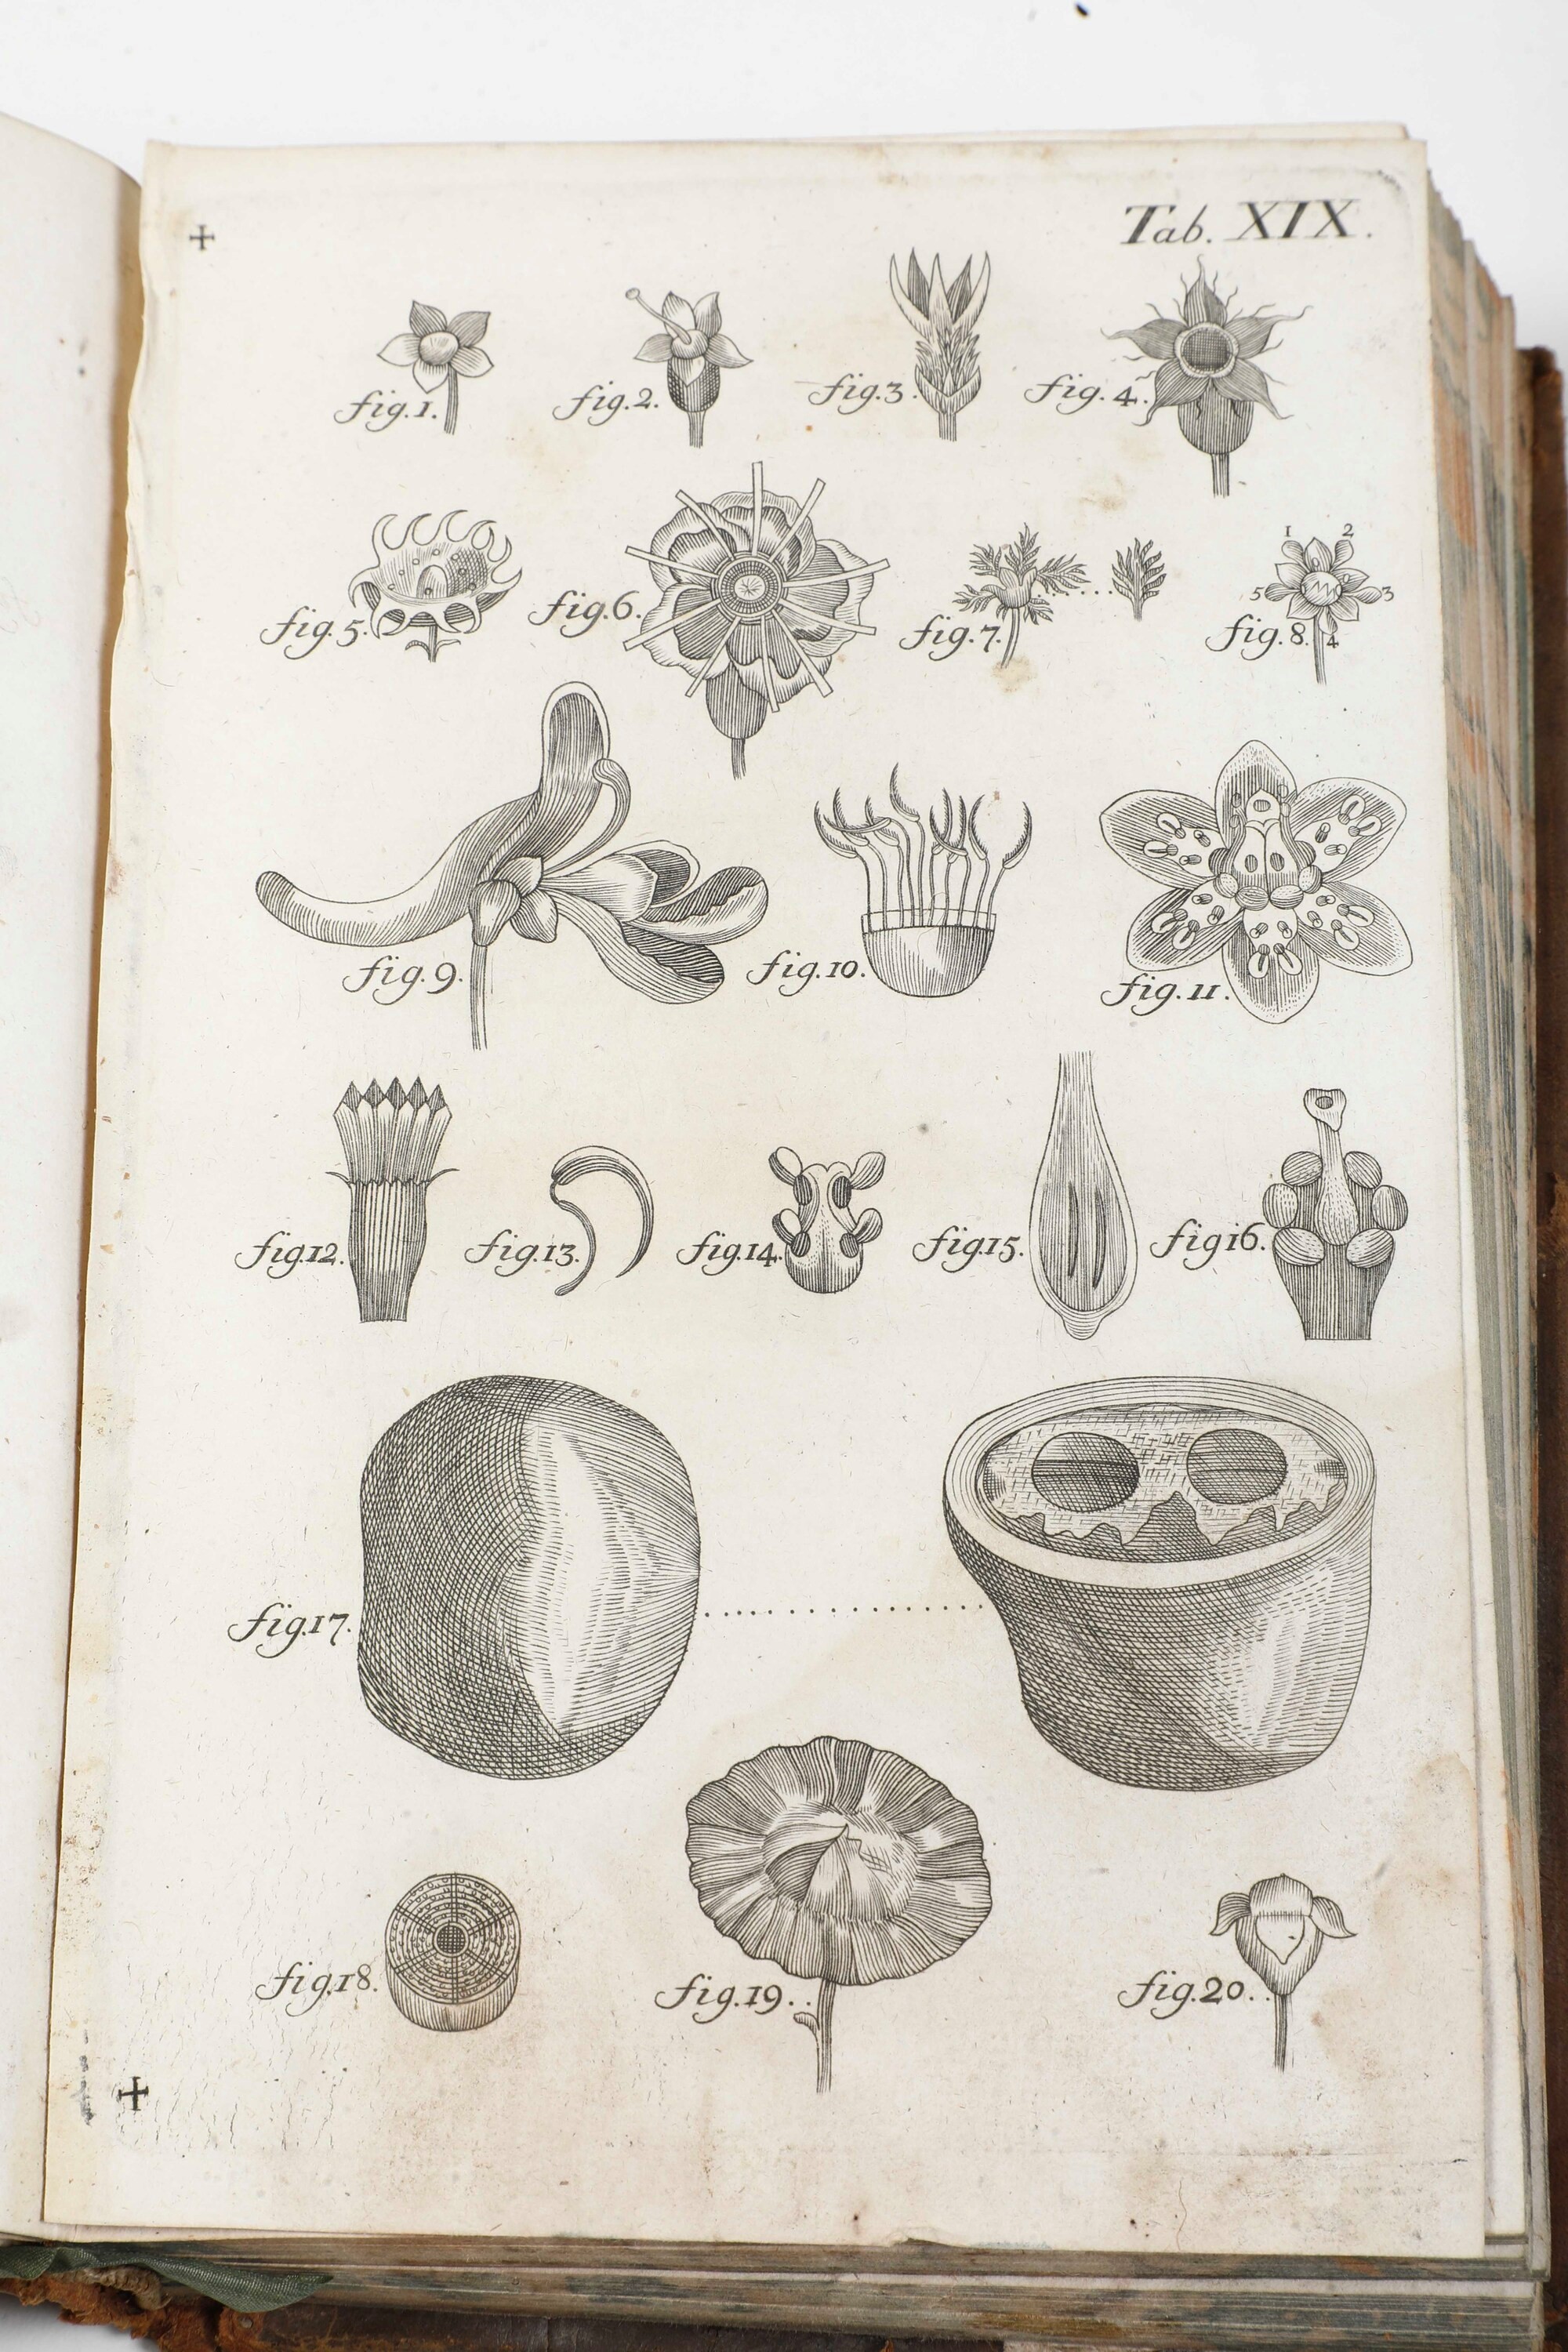 Tab. XIX.
fig. 1.
fig. 2.
fig. 3.
fig. 4.
fig. 5.
fig. 6.
fig. 7.
1 2
5 3
fig. 8. 4
fig. 9.
fig. 10.
fig. 11.
fig. 12.
fig. 13.
fig. 14.
fig. 15.
fig 16.
fig. 17.
fig. 18.
fig. 19.
fig. 20.